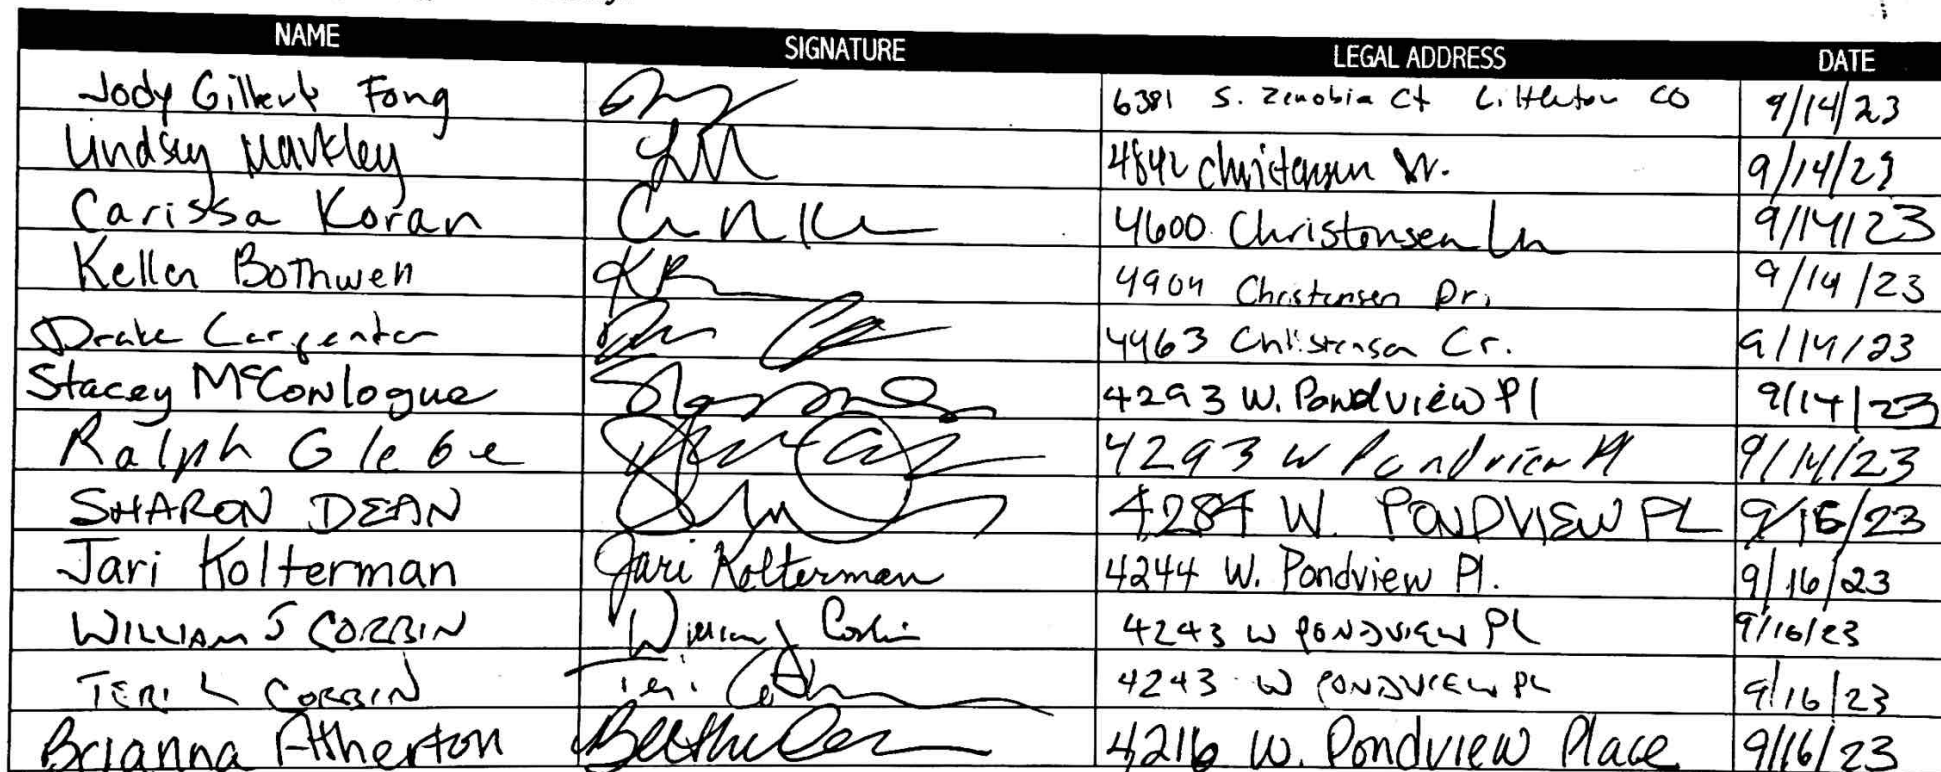 NAME SIGNATURE LEGAL ADDRESS DATE
Jody Gilbert Fong 6381 S. Zenobia Ct Littleton CO 9/14/23
Lindsey Markley LM 4842 Christensen 9/14/23
Carissa Koran 4600 Christensen Ln 9/14/23
Keller Bothwell KB 4904 Christensen Dr. 9/14/23
Drake Carpenter 4463 Christensen Cr. 9/14/23
Stacey McConlogue 4293 W. Pondview Pl 9/14/23
Ralph Glebe 4293 W Pondview Pl 9/14/23
SHARON DEAN 4284 W. PONDVIEW PL 9/16/23
Jari Kolterman Jari Kolterman 4244 W. Pondview Pl. 9/16/23
WILLIAM J CORBIN William J Corbin 4243 W PONDVIEW PL 9/16/23
TERI L CORBIN Teri 4243 W PONDVIEW PL 9/16/23
Brianna Atherton 4216 W. Pondview Place 9/16/23